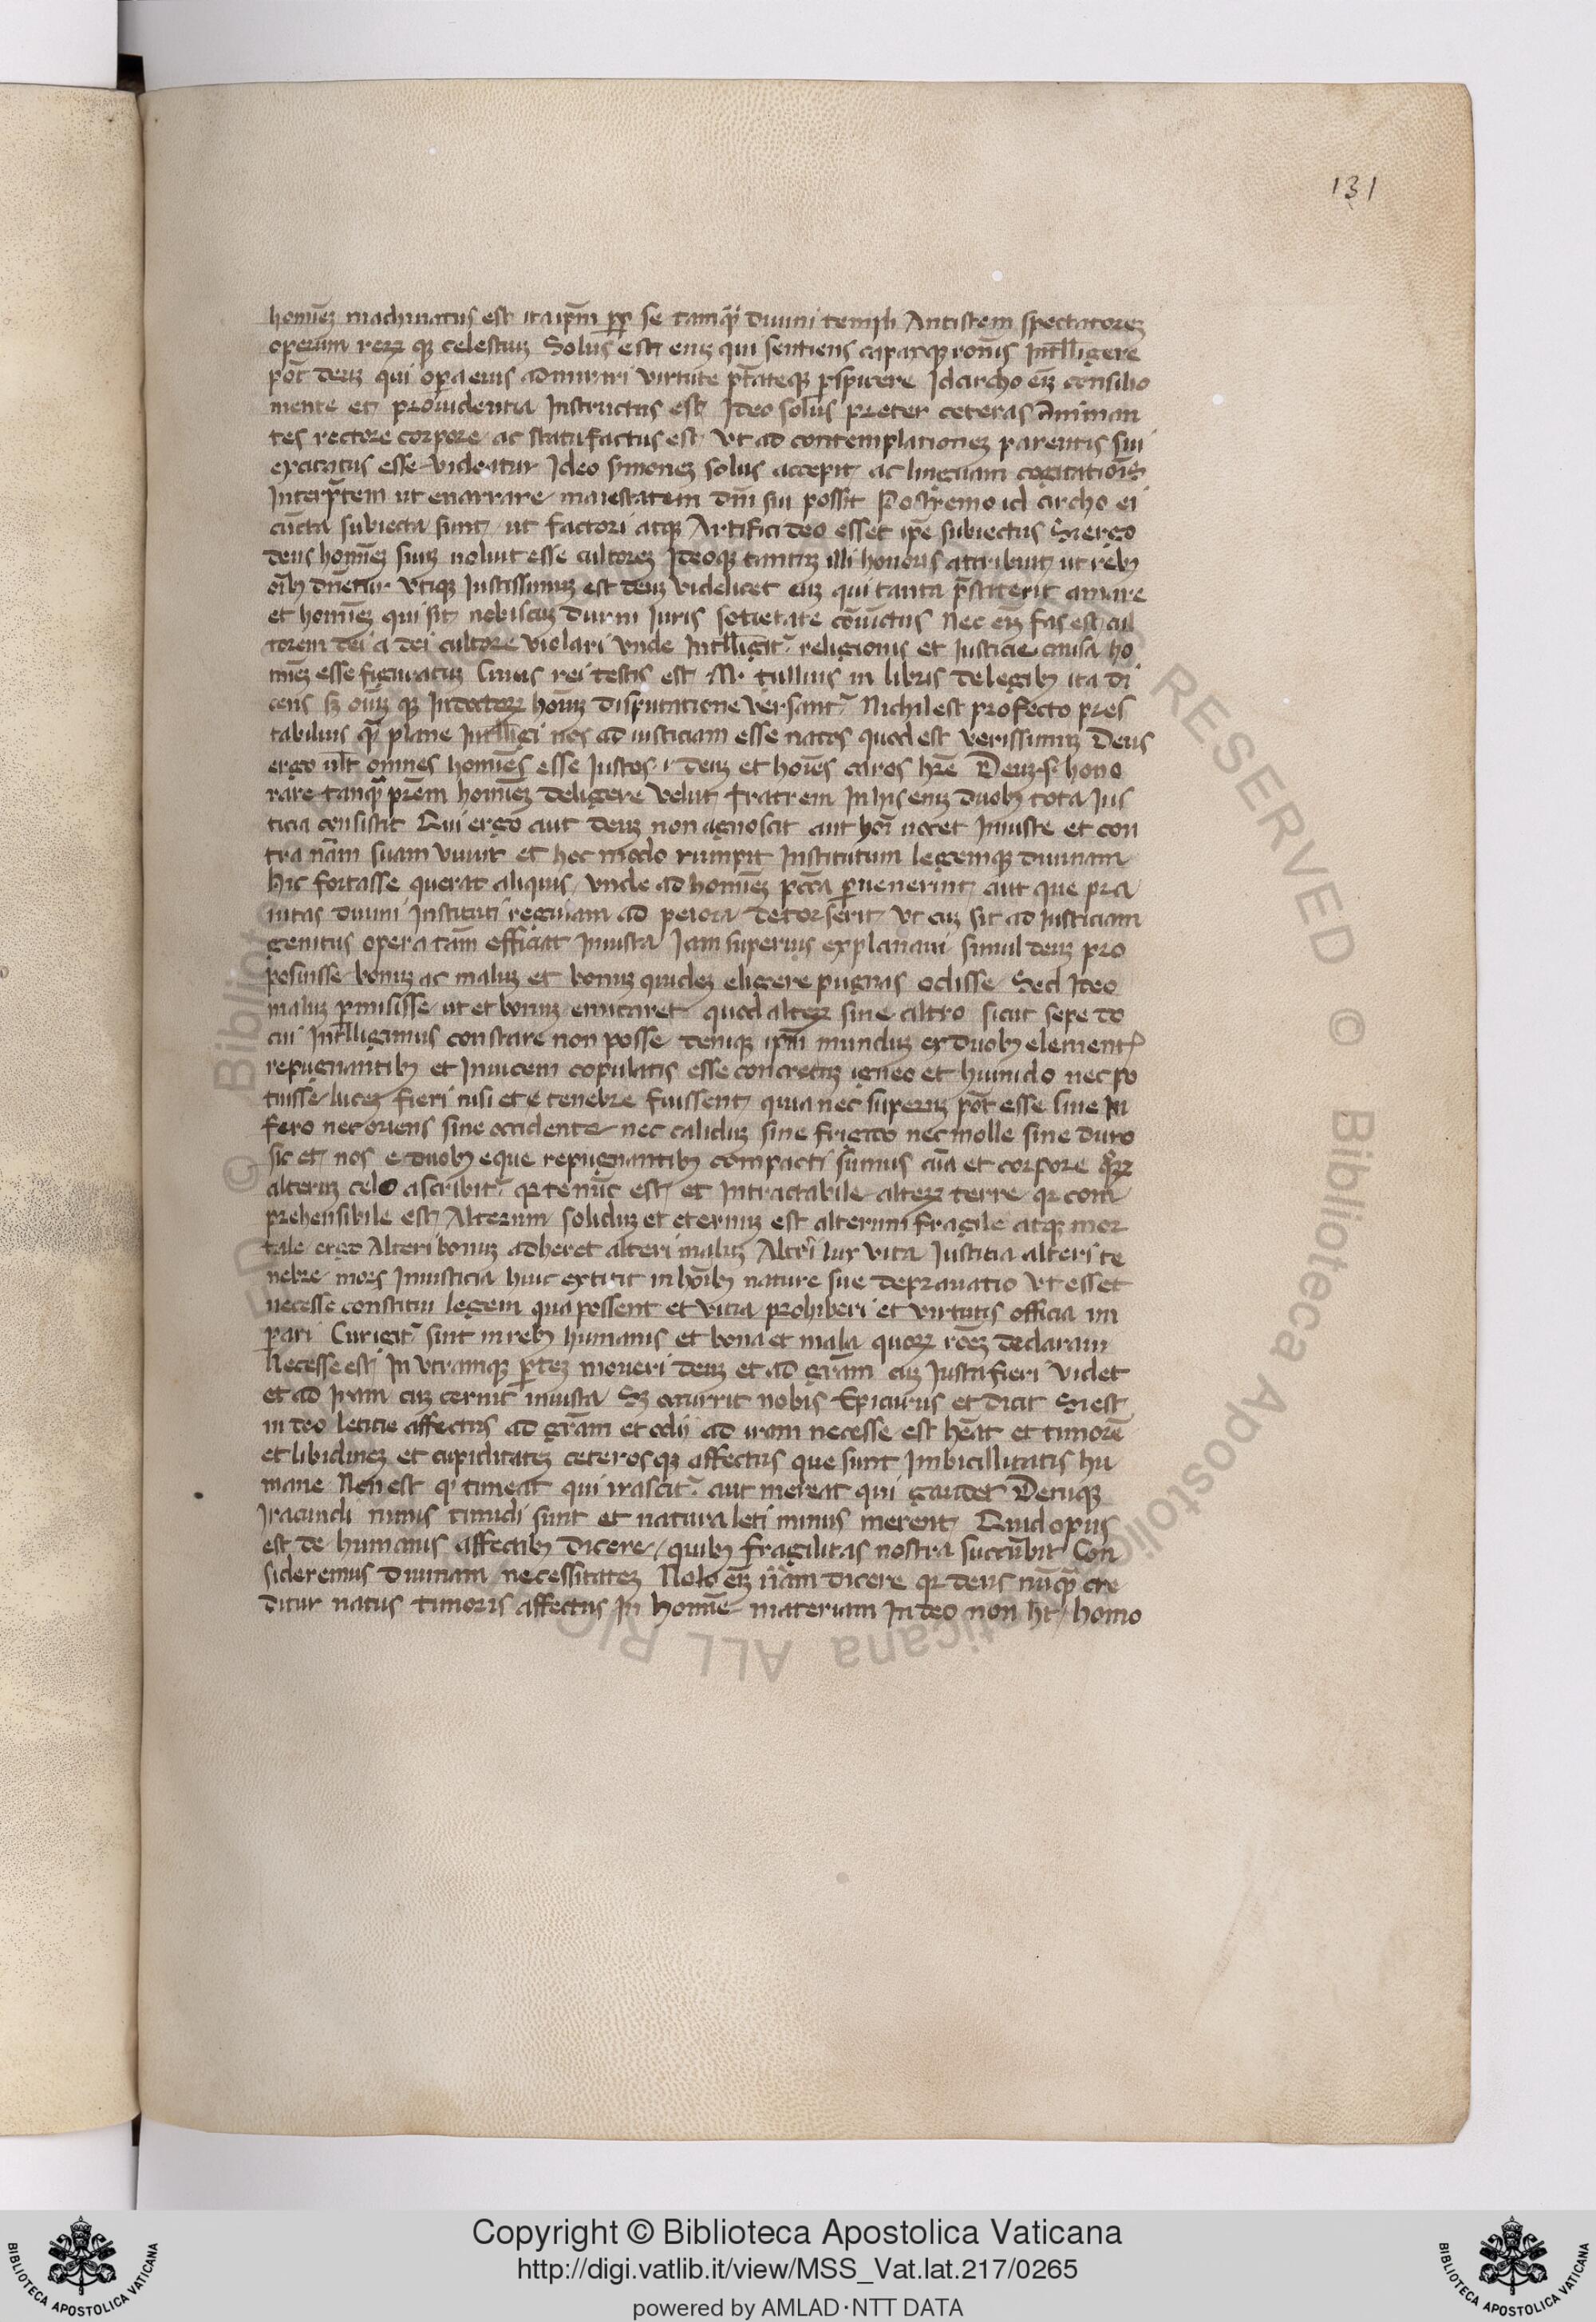 131
hominē machinatus est ita ip̄m pp̄ se tamq̄ diuini templi Antistem spectatorē
operum rerꝝ qꝫ celestiuꝫ Solus est eniꝫ qui sentiens capaxqꝫ ronis Intelligere
pōt deuꝫ qui opera eius admirari virtutē p̄tateqꝫ ꝑspicere Idcircho eīꝫ consilio
mente et prouidentia Instructus est Ideo solus preter ceteras Animan
tes rectore corpore ac statu factus est vt ad contemplationeꝫ parentis sui
excitatus esse videatur Ideo s̄moneꝫ solus accepit ac linguam cogitationis
Interp̄tem ut enarrare maiestatem dn̄i sui possit Postremo id circho ei
cūcta subiecta sunt ut factori atqꝫ Artifici deo esset ip̄e subiectus Si ergo
deus homineꝫ suuꝫ uoluit esse cultoreꝫ Ideoqꝫ tantuꝫ illi honoris attribuit ut rebꝫ
oībꝫ dn̄etur vtiqꝫ Iustissimuꝫ est deuꝫ videlicet euꝫ qui tanta p̄stiterit amare
et homineꝫ qui sit nobiscuꝫ diuini Iuris sotietate cōiūctus Nec eīꝫ fas est cul
torem dei a dei cultore violari vnde Intelligit᷑ religionis et Iusticie causa ho
mineꝫ esse figuratuꝫ Cuius rei testis est .M. tullius in libris de legibꝫ ita di
cens sꝫ oīuꝫ qꝫ In doctorꝝ hoīuꝫ disputatione versant᷑ Nichil est profecto pres
tabilius qꝫ plane Intelligi nos ad iusticiam esse natos quod est verissimuꝫ Deus
ergo ult omnes homines esse Iustos .i. deuꝫ et hoīes caros hr̄e Deuꝫ .s. hono
rare tanqꝫ pr̄em homineꝫ deligere velut fratrem In his eniꝫ duobꝫ tota Ius
ticia consistit Qui ergo aut deuꝫ non agnoscit aut hoī nocet Iniuste et con
tra nām suam viuit et hoc modo rumpit Institutum legemqꝫ diuinam
Hic fortasse querat aliquis vnde ad homineꝫ pctā ꝑuenerint aut que pra
uitas diuini Instituti regulam ad peiora detorserit vt cuꝫ sit ad Iusticiam
genitus opera tam̄ efficiat Iniusta Iam superius explanaui simul deuꝫ pro
posuisse bonuꝫ ac maluꝫ et bonuꝫ quideꝫ eligere pugnas odisse Sed Ideo
maluꝫ ꝑmisisse ut et bonuꝫ emicaret quod alteꝝ sine altro sicut sepe do
cui Intelligimus constare non posse deniqꝫ ip̄m munduꝫ ex duobꝫ element᷑
repugnantibꝫ et Inuicem copulatis esse concretuꝫ igneo et humido nec po
tuisse luceꝫ fieri nisi et e tenebre fuissent quia nec superuꝫ pōt esse sine In
fero nec oriens sine occidente nec caliduꝫ sine frigido nec molle sine duro
sic et nos e duobꝫ eque repugnantibꝫ compacti sumus aīa et corpore qꝝ
alteruꝫ celo ascribit᷑ qꝛ tenue est et Intractabile alteꝝ terre qꝛ com
prehensibile est Alterum soliduꝫ et eternuꝫ est alterum fragile atqꝫ mor
tale ergo Alteri bonuꝫ adheret alteri maluꝫ Altr̄i lux vita Iusticia alteri te
nebre mors Iniusticia hinc extitit in hoībꝫ nature sue deprauatio vt esset
necesse constitui legem qua possent et vitia prohiberi et virtutis officia im
pari Cuꝫ igit᷑ sint in rebꝫ humanis et bona et mala quorꝝ rōeꝫ declaraui
Necesse est In vtramqꝫ ꝑteꝫ moueri deuꝫ et ad grām cuꝫ Iusta fieri videt
et ad Iram cuꝫ cernit iniusta Sꝫ occurrit nobis Epicurus et dicit Si est
in deo leticie affectus ad grām et odij ad iram necesse est heāt et timorē
et libidineꝫ et cupiditateꝫ ceterosqꝫ affectus que sunt Imbicillitatis hu
mane Non est qꝫ timeat qui irascit᷑ aut mereat qui gaudet Deniqꝫ
Iracundi minus timidi sunt et natura leti minus merent Quid opus
est de humanis affectibꝫ dicere quibꝫ fragilitas nostra succūbit Con
sideremus diuinam necessitateꝫ Nolo eīꝫ nām dicere qꝛ deus nūqꝫ cre
ditur natus timoris affectus In homine materiam In deo non ht̄ homo
Copyright © Biblioteca Apostolica Vaticana
http://digi.vatlib.it/view/MSS_Vat.lat.217/0265
powered by AMLAD·NTT DATA